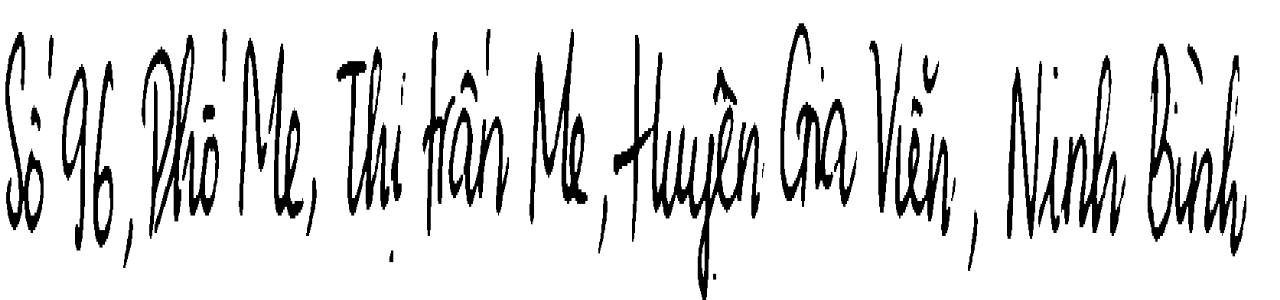 Số 96, Phố Me, Thị trấn Me, Huyện Gia Viễn, Ninh Bình